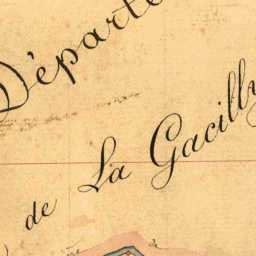 Départe
de La Gacilly